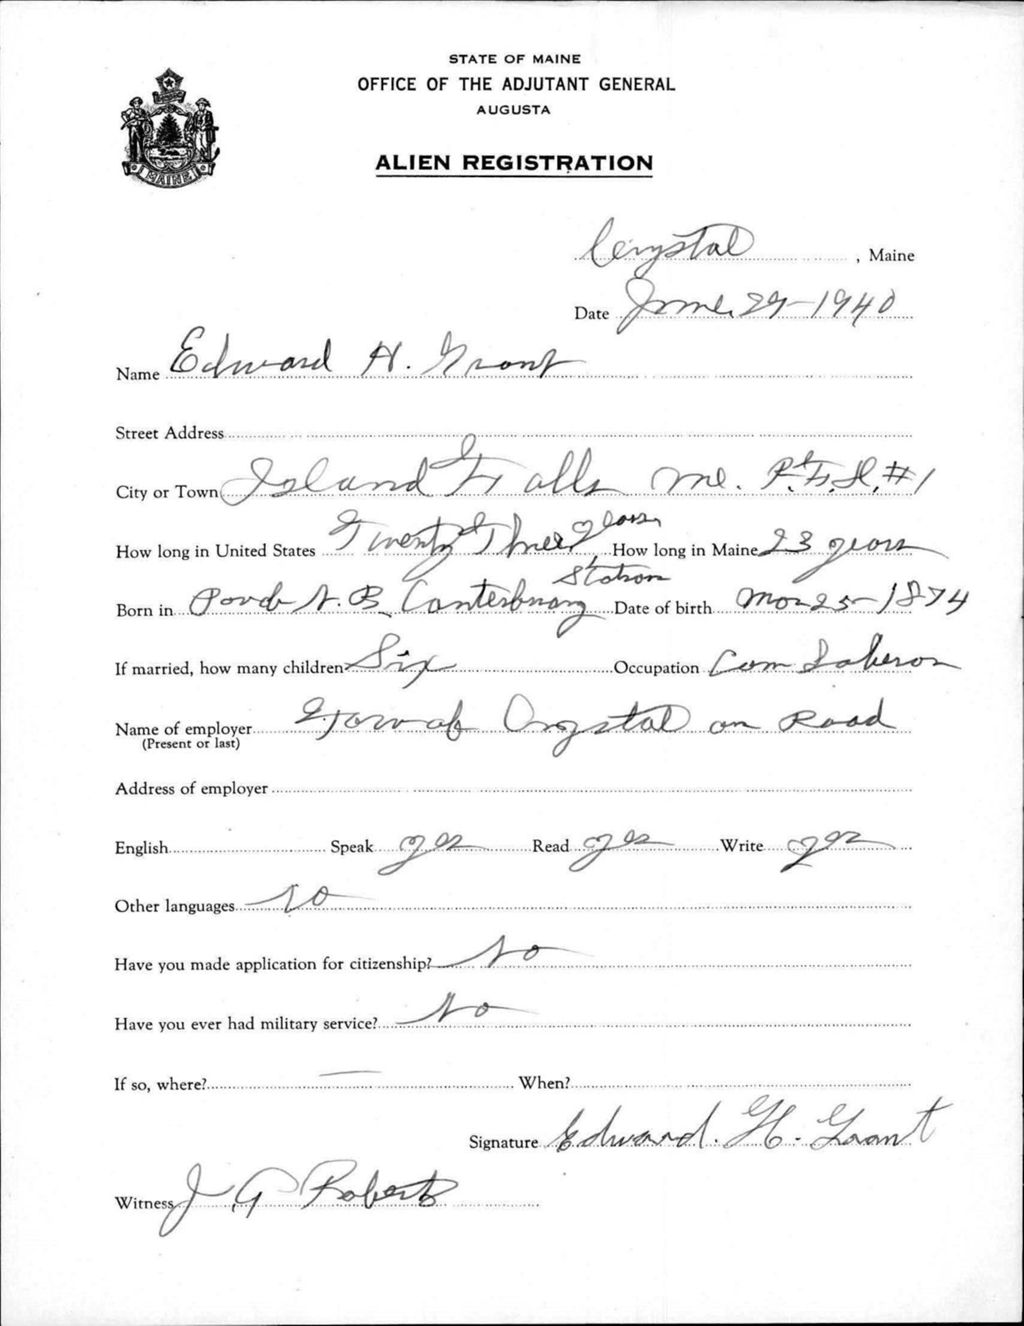 STATE OF MAINE
OFFICE OF THE ADJUTANT GENERAL
AUGUSTA
ALIEN REGISTRATION
MAINE
Crystal, Maine
Date June 29-1940
Name Edward H. Grant
Street Address
City or Town Island Falls Me. #1
How long in United States Twenty Three years How long in Maine 23 years
Born in N.B. Canterbury Station Date of birth 25-1874
If married, how many children Six Occupation Com Laberor
Name of employer Town of Crystal on Road
(Present or last)
Address of employer
English Speak yes Read yes Write yes
Other languages no
Have you made application for citizenship? No
Have you ever had military service? No
If so, where? — When?
Signature Edward. H. Grant
Witness J. G Roberts